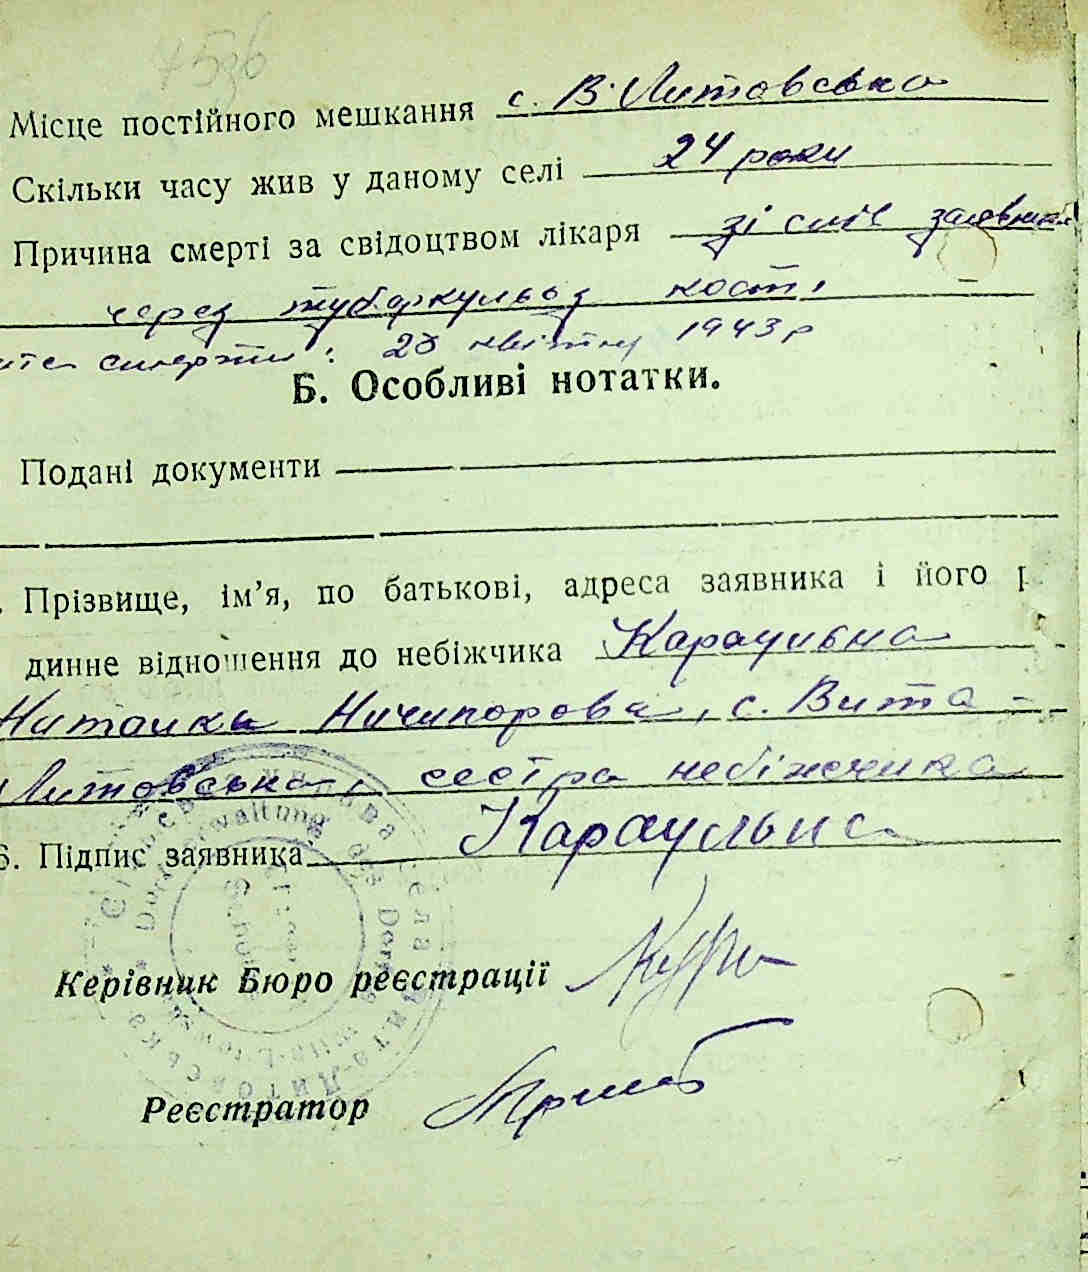 Місце постійного мешкання с. В. Литовська
Скільки часу жив у даному селі 24 роки
Причина смерті за свідоцтвом лікаря зі слів заявника
через туберкульоз кості
смерти: квітня 1943 р
Б. Особливі нотатки.
Подані документи
Прізвище, ім'я, по батькові, адреса заявника і його р
динне відношення до небіжчика Караульна
Наталка Ничипорова, с. Вита-
Литовська, сестра небіжчика
6. Підпис заявника Караульна
Керівник Бюро реєстрації
Реєстратор